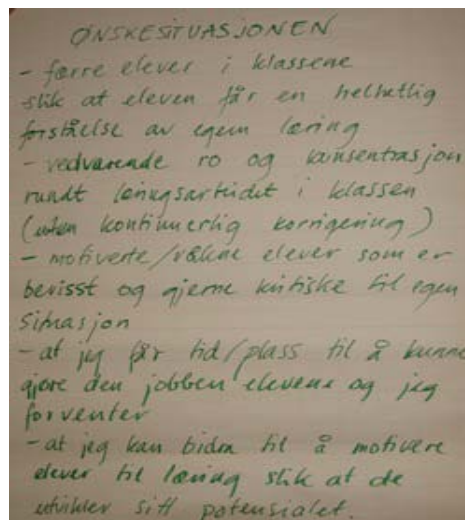 ØNSKESITUASJONEN
- færre elever i klassene
slik at eleven får en helhetlig
forståelse av egen læring
- vedvarende ro og konsentrasjon
rundt læringsarbeidet i klassen
(uten kontinuerlig korrigering)
- motiverte/våkne elever som er
bevisst og gjerne kritiske til egen
situasjon
- at jeg får tid/plass til å kunne
gjøre den jobben elevene og jeg
forventer
- at jeg kan bidra til å motivere
elever til læring slik at de
utvikler sitt potensialet.